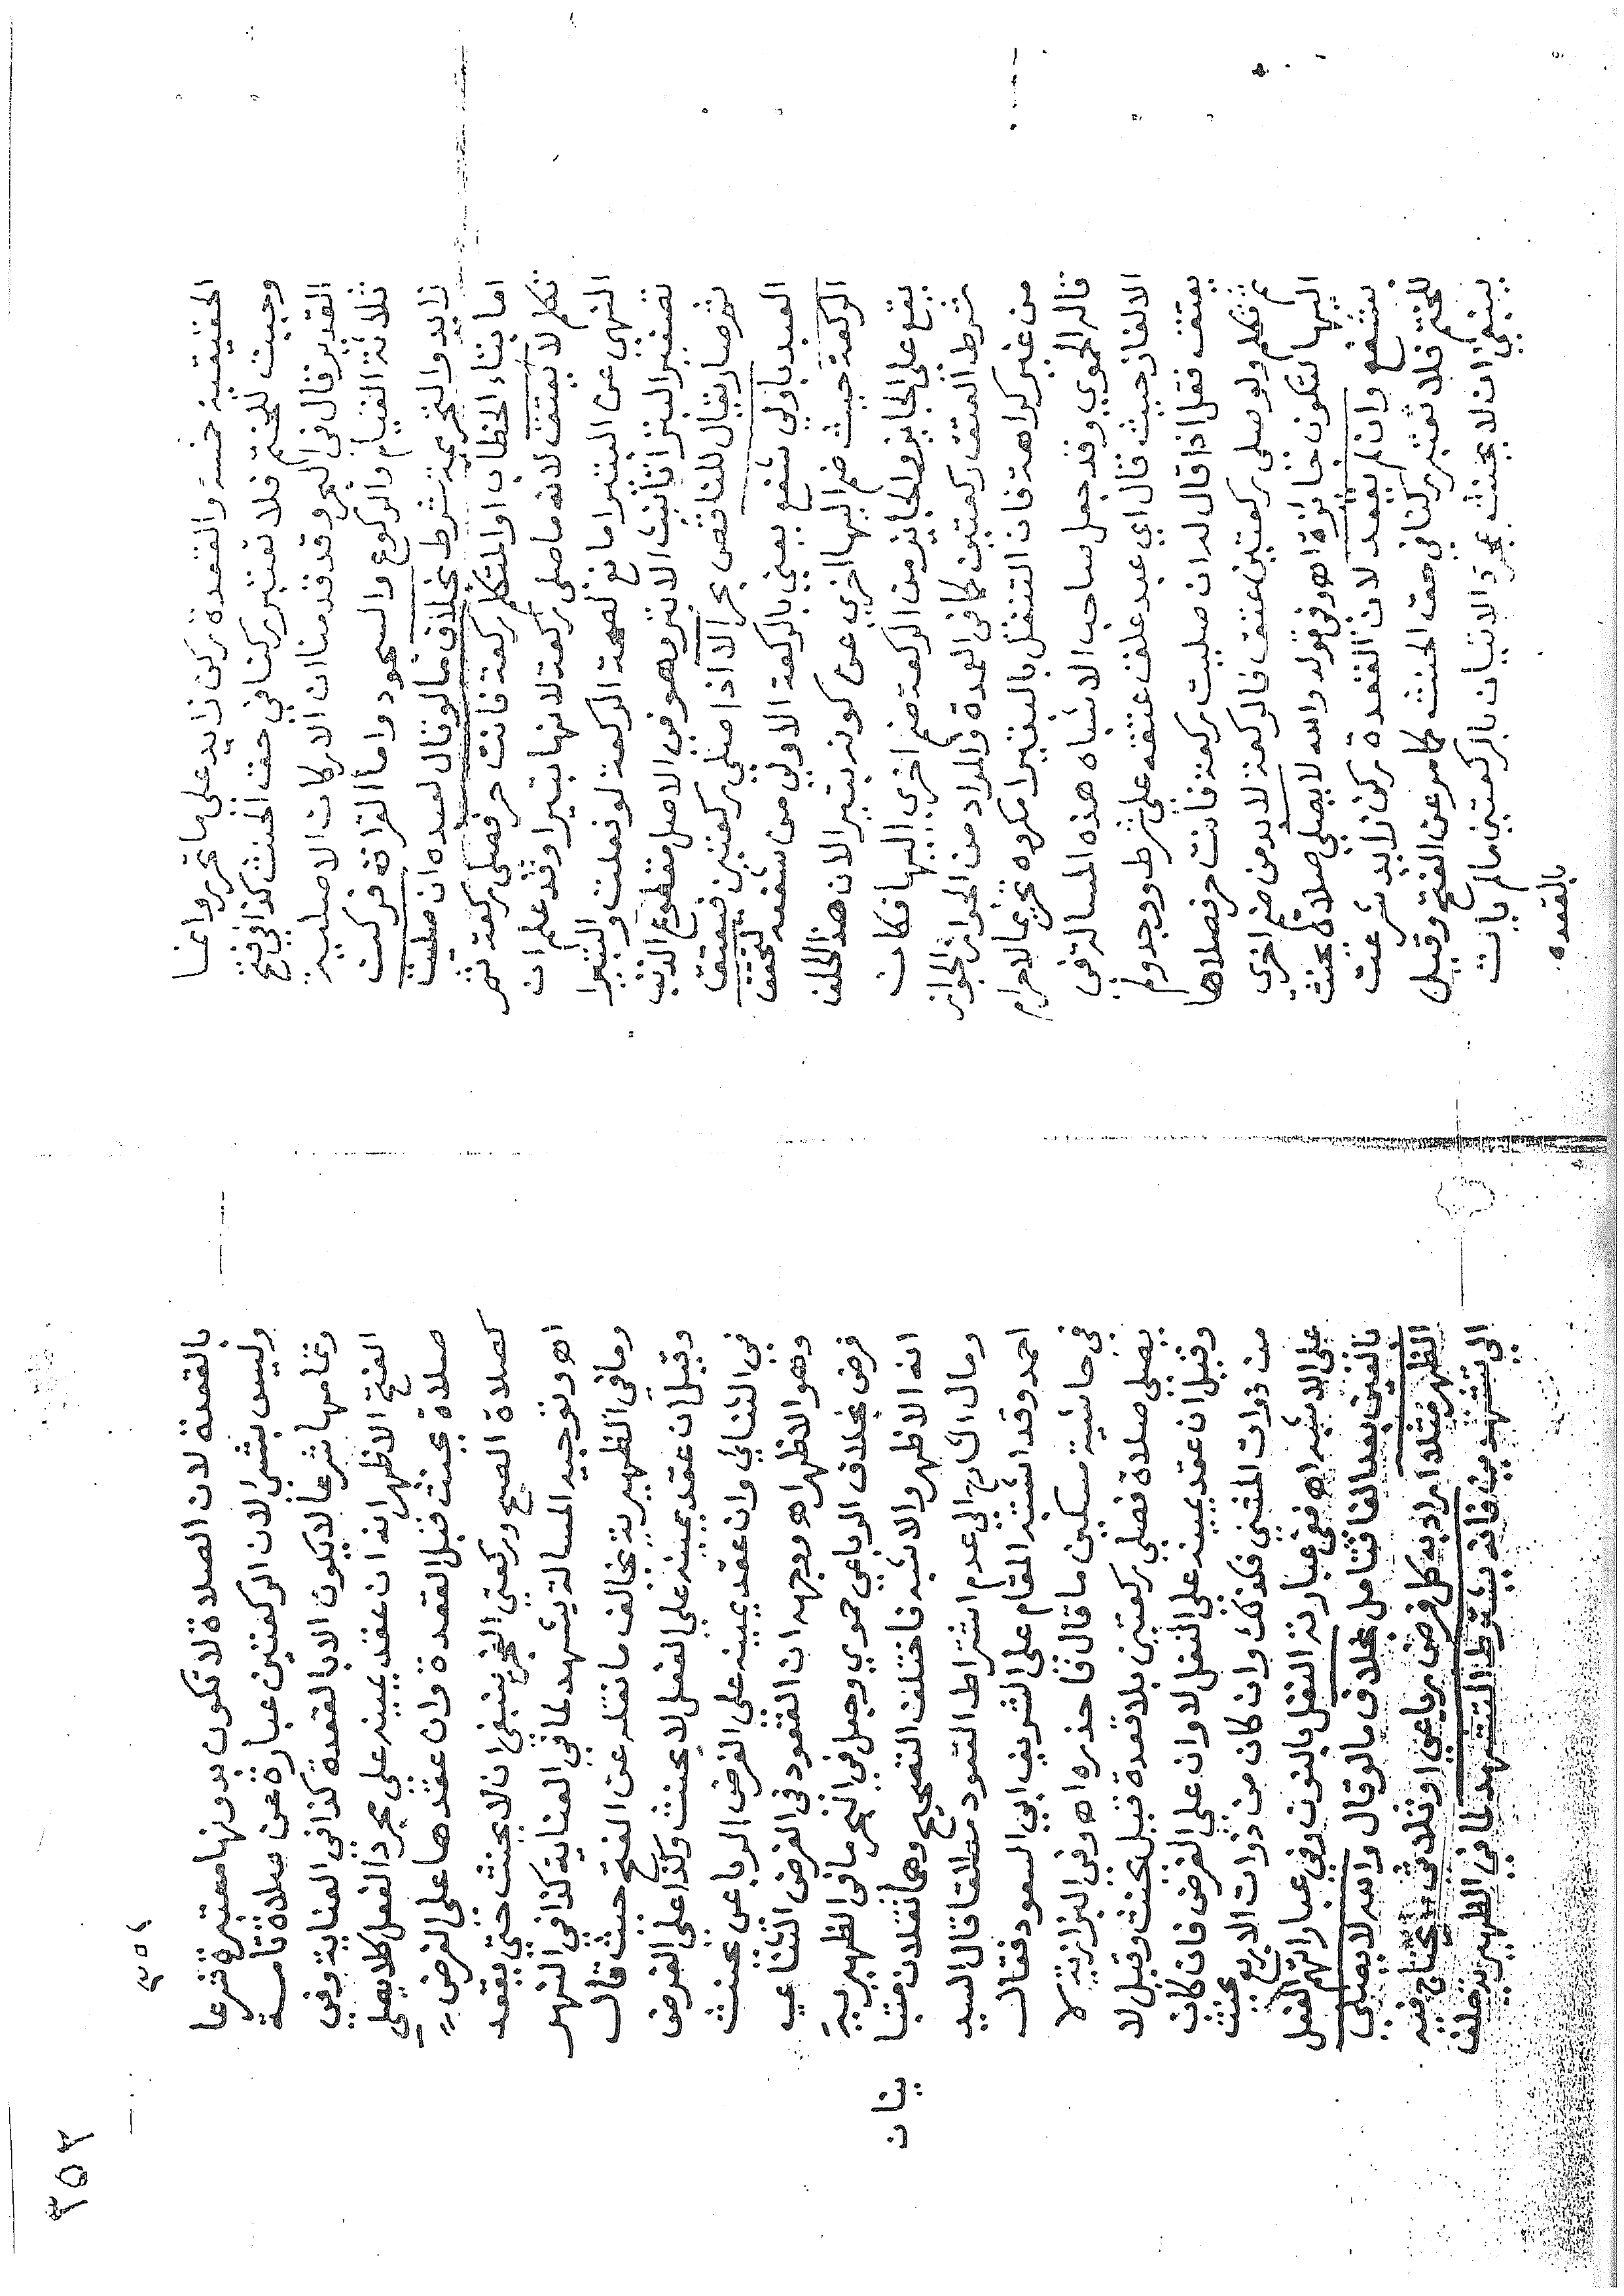 الحقيقية خمسة والقعدة ركن زايد على ما تحرر وانما
وجبت للختم فلا تعتبر ركنا في حق الحنث كذا في فتح
القدير قال في البحر وقد قدمنا ان الاركان الاصلية
ثلاثة القيام والركوع والسجود واما القراة فركن
زايد والتحريمة شرط بخلاف ما لو قال لعبده ان صليت
اما بتاء الخطاب او المتكلم ركعة فانت حر فصلى ركعة ثم
تكلم لا يعتق لانه ما صلى ركعة لانها بتيرا وقد علم ان
النهى عن البتيرا مانع لصحة الركعة لو فعلت والبتيرا
تصغير البترا تانيث الابتر وهو في الاصل مقطوع الذنب
ثم صار يقال للناقص بحر الا اذا صلى ركعتين فيعتق
العبد باولى شفع يعني بالركعة الاولى من شفعه لتحقق
الركعة حيث ضم اليها اخرى عن كونه بتيرا لان هذا الحلف
يقع على الجايز والجايز من الركعة ضم اخرى اليها فكان
شرط العتق ركعتين كما في العمدة والمراد من الجواز الجواز
من غير كراهة فان التنفل بالبتيرا مكروه تحريما لا حرام
قاله الحموي وقد جعل صاحب الاشباه هذه المسالة في
الالغاز حيث قال اي عبد علق عتقه على شرط ووجد ولم
يعتق فقل اذا قال له ان صليت ركعة فانت حر فصلاها
ثم تكلم ولو صلى ركعتين عتق فالركعة لا بد من ضم اخرى
اليها لتكون جائزة اه وفي قوله والله لا يصلي صلاة يحنث
بشفع وان لم يقعد لان القعدة ركن زايد شرعت
للختم فلا تعتبر ركنا في حق الحنث كما مر عن الفتح وقيل
ينبغي ان لا يحنث بمجرد الاتيان بالركعتين ما لم يات
بالقعدة
٢٥٢
بالقعدة لان الصلاة لا تكون بدونها معتبرة شرعا
وليس بشي لان الركعتين عبارة عن صلاة تامة
وتمامها شرعا لا يكون الا بالقعدة كذا في العناية وفي
الفتح الاظهر انه ان عقد يمينه على مجرد الفعل كلا يصلي
صلاة يحنث قبل القعدة وان عقدها على الفرض
كصلاة الصبح وركعتي الفجر ينبغي ان لا يحنث حتى يقعد
اه وتوجيه المسالة يشهد لما في العناية كذا في النهر
وما في الظهيرية يخالف ما نقله عن الفتح حيث قال
وقيل ان عقد يمينه على الفعل لا يحنث وكذا على الفرض
في الثنائي وان عقد يمينه على الفرض الرباعي يحنث
وهو الاظهر اه ووجهه ان القعود في الفرض الثناعي
فرض بخلاف الرباعي حموي وجعل في البحر ما في الظهيرية
انه الاظهر والاشبه فاختلف التصحيح وهما نقلان متبا
ينان
ومال الشارح الى عدم اشتراط القعود مطلقا قال السيد
احمد وقد اشتبه المقام على الشريف ابي السعود فقال
في حاشية مسكين ما قال فاحذره اه وفي البزازية لا
يصلي صلاة فصلى ركعتين بلا قعدة قيل يحنث وقيل لا
وقيل ان عقد يمينه على النفل لا وان على الفرض فان كان
من ذوات المثنى فكذلك وان كان من ذوات الاربع يحنث
على الاشبه اه ففي عبارته النفل بالنون وفي عباراتهم الفعل
بالعين بعد الفا فتامل بخلاف ما لو قال والله لا يصلي
الظهر مثلا اراد به كل فرض رباعي او ثلاثي يحتاج فيه
الى تشهدين فانه يشترط التشهد لما في الظهيرية حلف